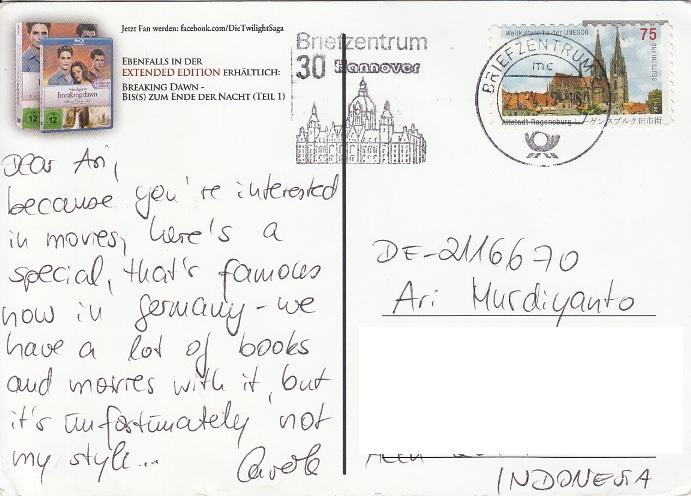 Jetzt Fan werden: facebook.com/DieTwilightSaga
EBENFALLS IN DER
EXTENDED EDITION ERHÄLTLICH:
BREAKING DAWN -
BIS(S) ZUM ENDE DER NACHT (TEIL 1)
breaking dawn
Briefzentrum
30 Hannover
BRIEFZENTRUM
mc
Weltkulturerbe der UNESCO
75
DEUTSCHLAND
Altstadt Regensburg レーゲンスブルク旧市街
Dear Ari,
because you're interested
in movies, here's a
special, that's famous
now in germany - we
have a lot of books
and movies with it, but
it's unfortunately not
my style...
Carole
DE-2116670
Ari Murdiyanto
INDONESIA